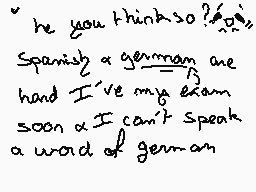 he you think so?
Spanish & german are
hard I've my exam
soon & I can't speak
a word of german